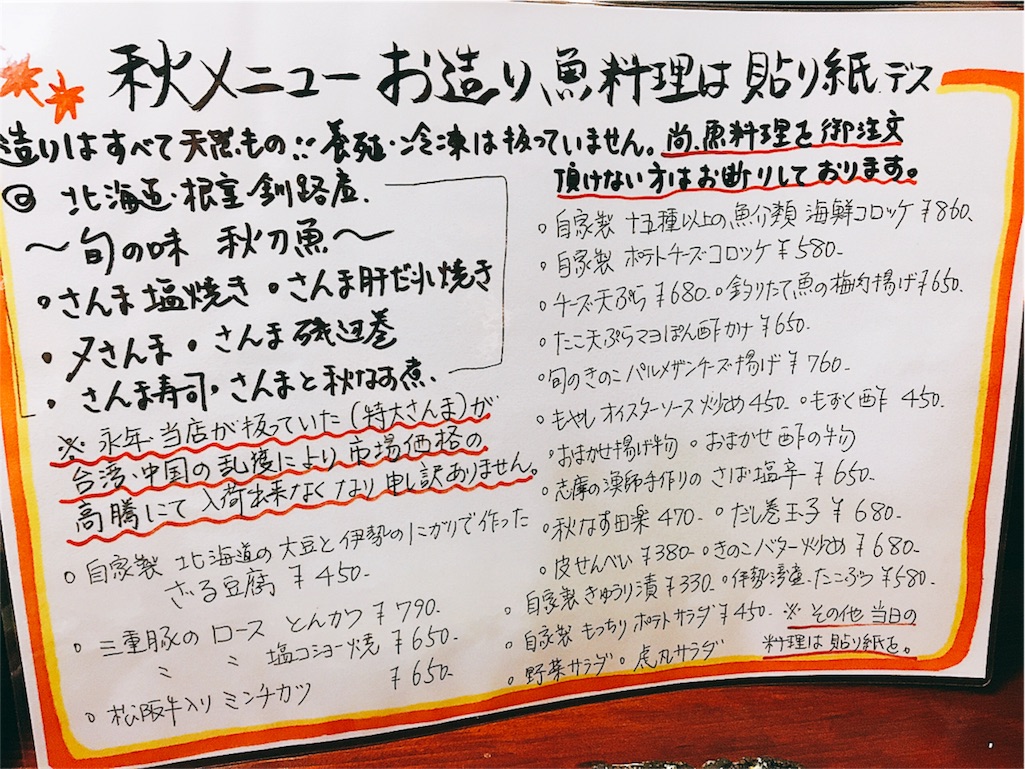 秋メニューお造り、魚料理は貼り紙デス
造りはすべて天然もの!! 養殖・冷凍は扱っていません。尚、魚料理を御注文
頂けない方はお断りしております。
◎ 北海道・根室・釧路産.
〜旬の味 秋刀魚〜
・さんま塩焼き ・さんま肝だれ焼き
・夕さんま ・さんま磯辺巻
・さんま寿司・さんまと秋なす煮.
※ 永年当店が扱っていた(特大さんま)が
台湾・中国の乱獲により市場価格の
高騰にて入荷出来なくなり申し訳ありません。
○ 自家製 北海道の大豆と伊勢のにがりで作った
ざる豆腐 ¥450-
○ 三重豚の ロース とんかつ ¥790.
〃 〃 塩コショー焼 ¥650-
○ 松阪牛入りミンチカツ ¥650-
○ 自家製 十五種以上の魚介類 海鮮コロッケ ¥860.
○ 自家製 ポテトチーズ・コロッケ ¥580-
○ チーズ天ぷら ¥680-○釣りたて魚の梅肉揚げ ¥650.
○ たこ天ぷらマヨぽん酢かけ ¥650.
○ 旬のきのこパルメザンチーズ揚げ ¥760.
○ もやしオイスターソース炒め 450-○もずく酢 450.
○ おまかせ揚げ物 ○ おまかせ酢の物
○ 志摩の漁師手作りの さば塩辛 ¥650-
○ 秋なす田楽 470- ○ だし巻玉子 ¥680-
○ 皮せんべい ¥380-○きのこバター炒め ¥680-
○ 自家製きゅうり漬 ¥330.○伊勢湾産たこぶつ ¥580-
○ 自家製 もっちりポテトサラダ ¥450. ※ その他 当日の
料理は貼り紙を。
○ 野菜サラダ ○ 虎丸サラダ